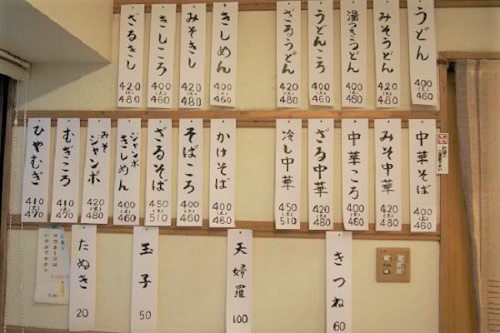 うどん 400 (大) 460
みそうどん 420 (大) 480
湯つきうどん 400 (大) 460
うどんころ 400 (大) 460
ざるうどん 420 (大) 480
きしめん 400 (大) 460
みそきし 420 (大) 480
きしころ 400 (大) 460
ざるきし 420 (大) 460
中華そば 400 (大) 460
みそ中華 420 (大) 480
中華ころ 400 (大) 460
ざる中華 420 (大) 480
冷し中華 450 (大) 510
かけそば 400 (大) 460
そばころ 400 (大) 460
ざるそば 450 (大) 510
ジャンボきしめん 400 (大) 460
みそジャンボ 420 (大) 480
むぎころ 410 (大) 470
ひやむぎ 410 (大) 470
きつね 60
天婦羅 100
玉子 50
たぬき 20